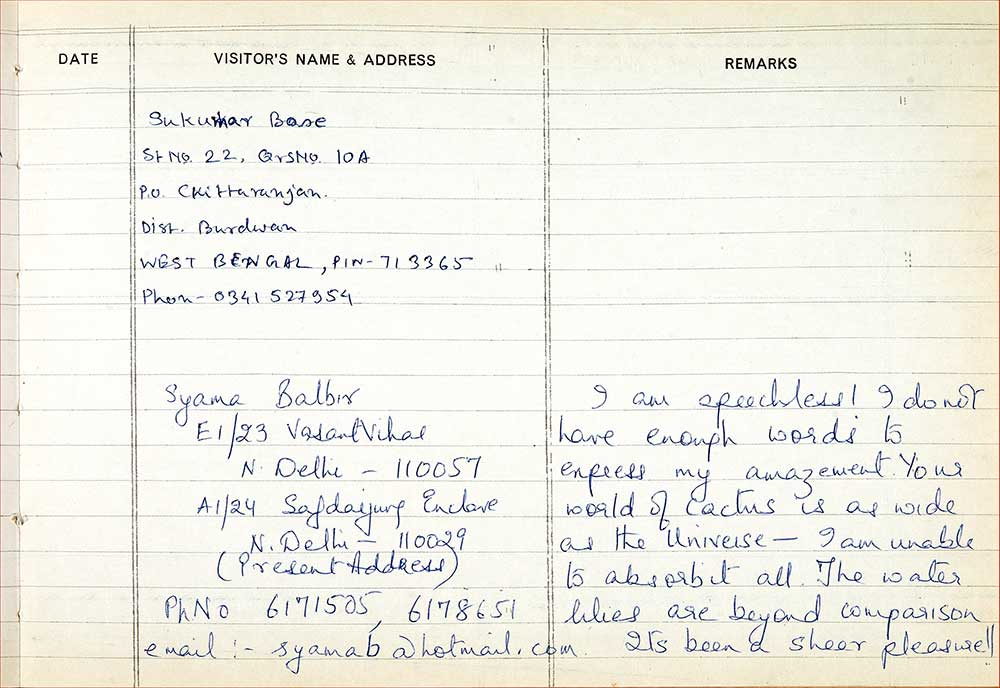 DATE
VISITOR'S NAME & ADDRESS
REMARKS
Sukumar Bose
St No. 22, Qrs No. 10A
P.O. Chittaranjan.
Dist. Burdwan
WEST BENGAL, PIN- 713365
Phon- 0341 527954
Syama Balbir
E1/23 Vasant Vihar
N. Delhi - 110057
A1/24 Safdarjung Enclave
N. Delhi - 110029
(Present Address)
Ph No 6171505, 6178651
email :- syamab@hotmail.com.
I am speechless! I do not
have enough words to
express my amazement. Your
world of cactus is as wide
as the Universe - I am unable
to absorb it all. The water
lilies are beyond comparison
Its been a sheer pleasure!!